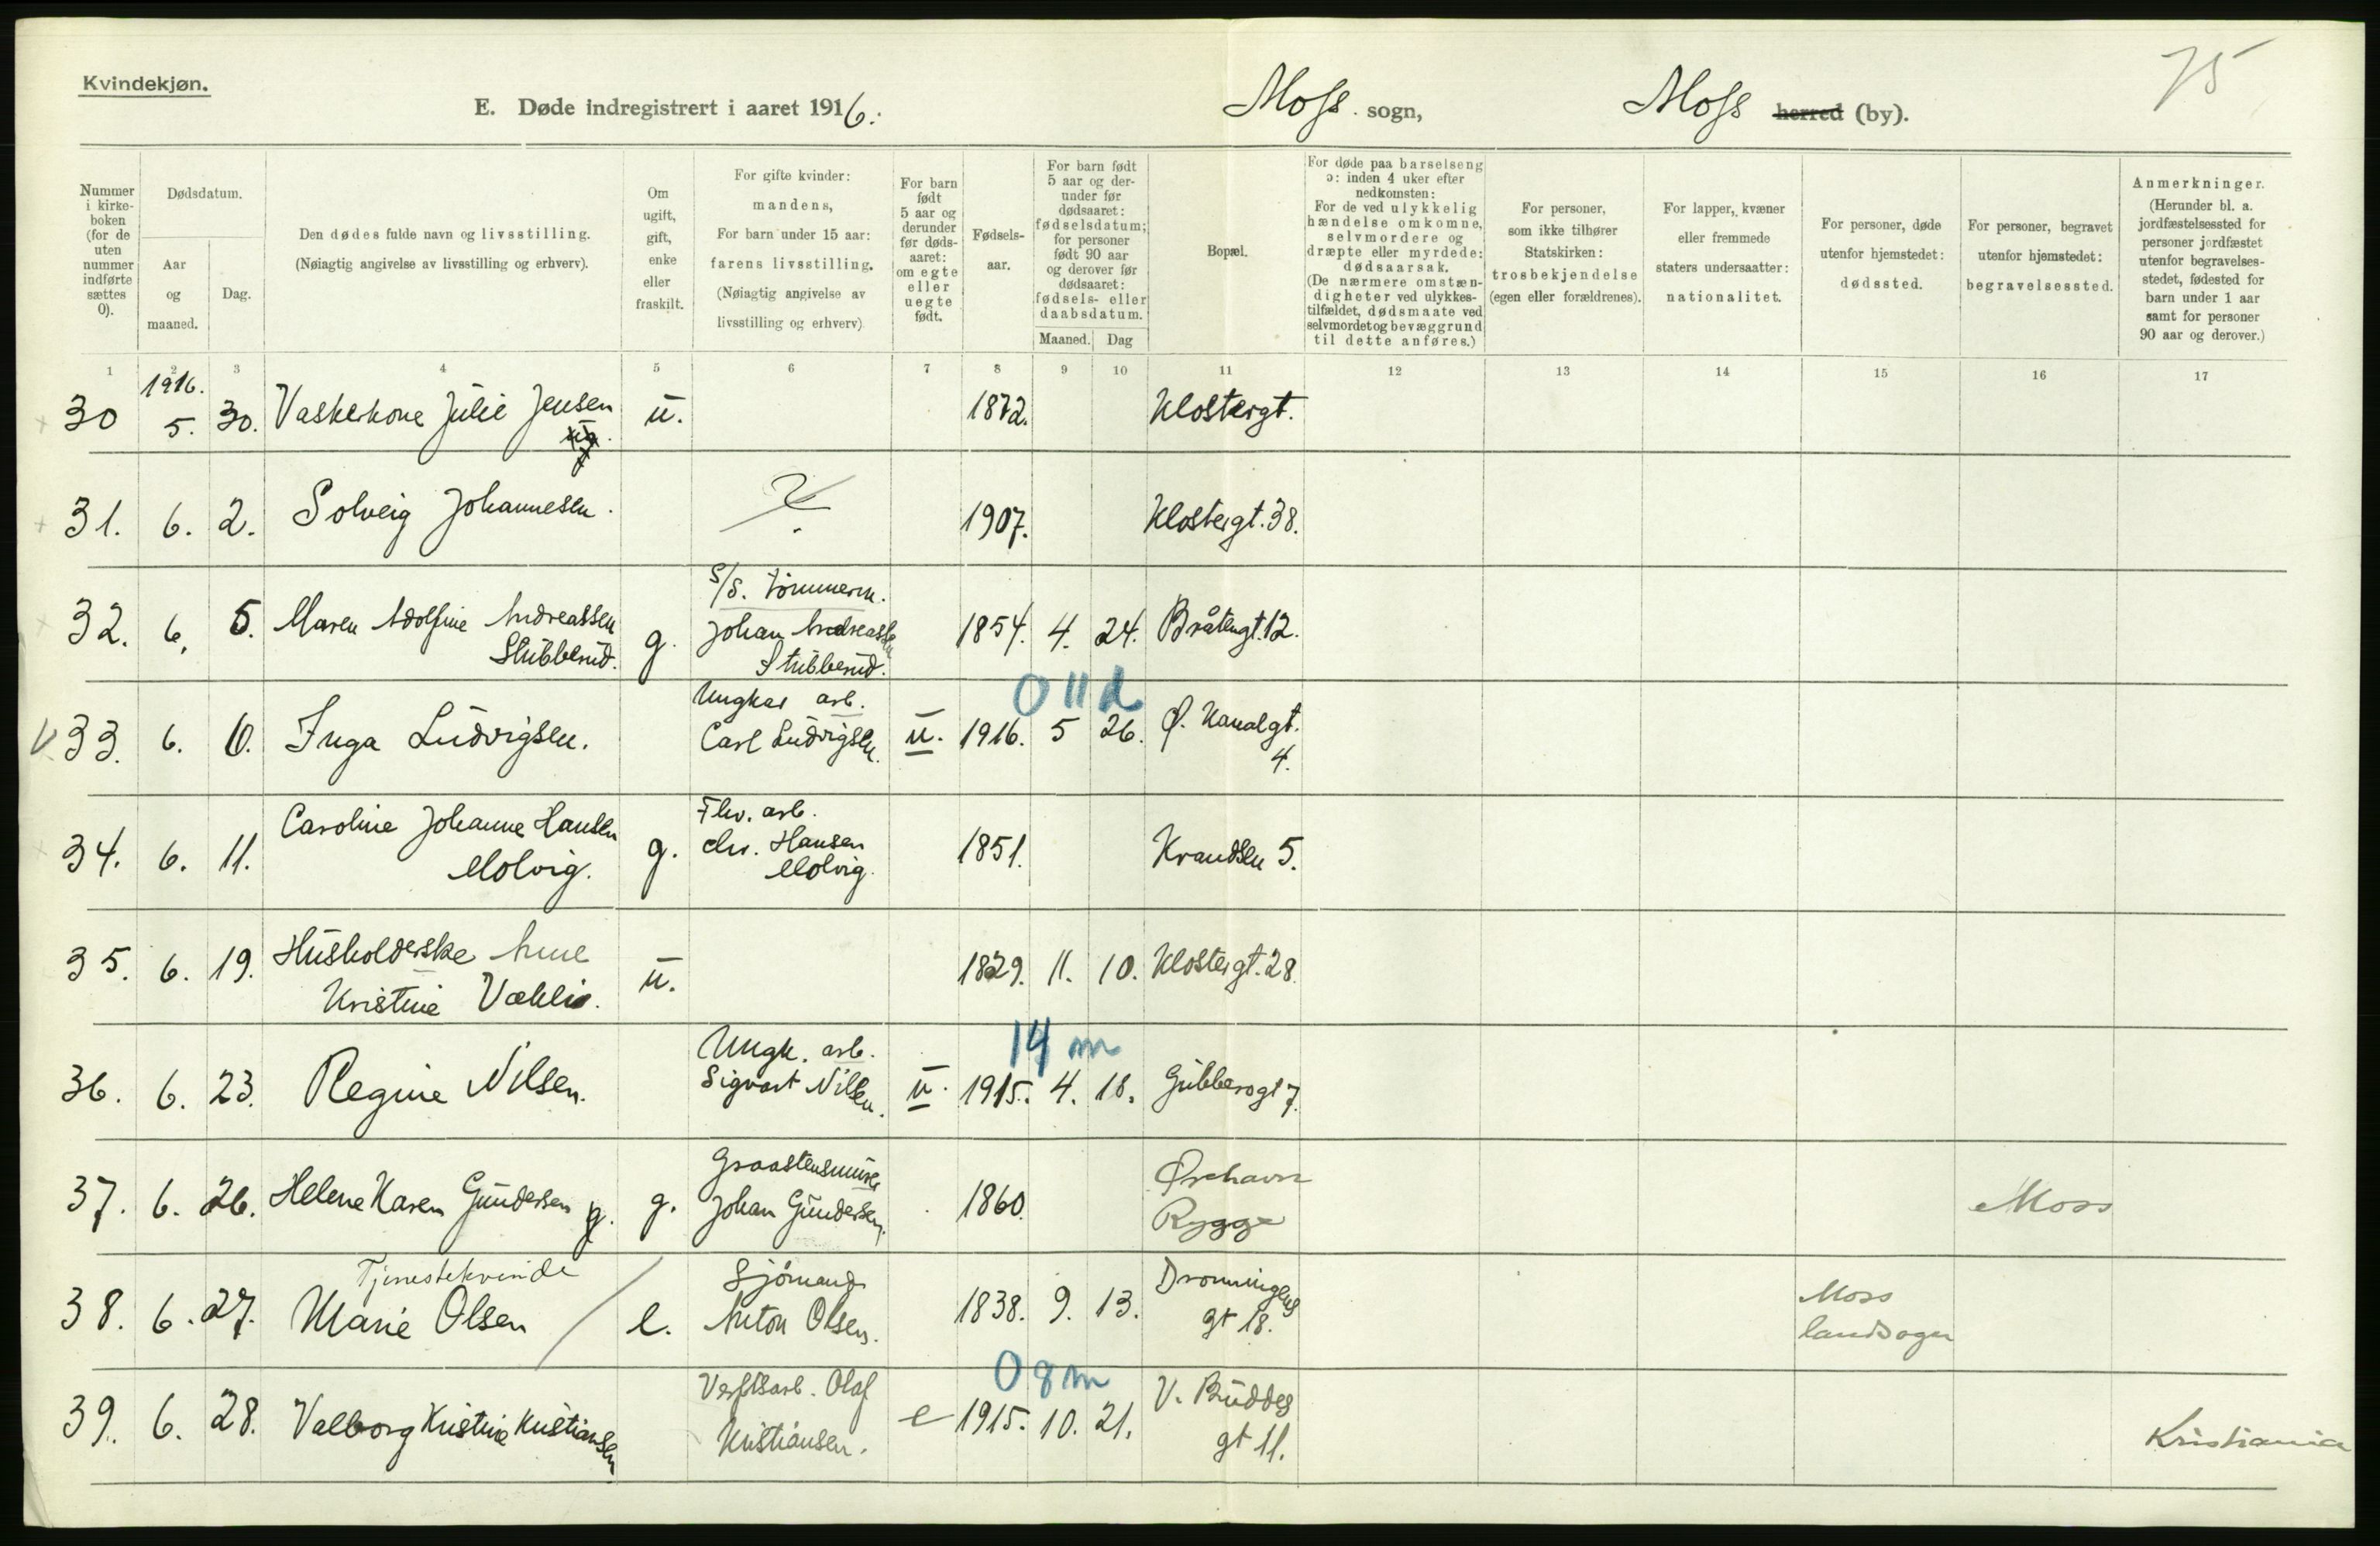 Kvindekjøn.
75
E. Døde indregistrert i aaret 1916.
Moss sogn,
Moss herred (by).
Nummer i kirkeboken (for de uten nummer indførte sættes 0).
Dødsdatum.
Aar og maaned.
Dag.
Den dødes fulde navn og livsstilling.
(Nøiagtig angivelse av livsstilling og erhverv).
Om ugift, gift, enke eller fraskilt.
For gifte kvinder:
mandens,
For barn under 15 aar:
farens livsstilling.
(Nøiagtig angivelse av livsstilling og erhverv)
For barn født 5 aar og derunder før dødsaaret: om egte eller uegte født.
Fødselsaar.
For barn født 5 aar og derunder før dødsaaret: fødselsdatum; for personer født 90 aar og derover før dødsaaret: fødsels- eller daabsdatum.
Maaned. Dag
Bopæl.
For døde paa barselseng ɔ: inden 4 uker efter nedkomsten:
For de ved ulykkelig hændelse omkomne, selvmordere og dræpte eller myrdede: dødsaarsak.
(De nærmere omstændigheter ved ulykkestilfældet, dødsmaate ved selvmordet og bevæggrund til dette anføres.)
For personer, som ikke tilhører Statskirken: trosbekjendelse (egen eller forældrenes).
For lapper, kvæner eller fremmede staters undersaatter: nationalitet.
For personer, døde utenfor hjemstedet: dødssted.
For personer, begravet utenfor hjemstedet: begravelsessted.
Anmerkninger.
(Herunder bl. a. jordfæstelsessted for personer jordfæstet utenfor begravelsesstedet, fødested for barn under 1 aar samt for personer 90 aar og derover.)
1 2 3 4 5 6 7 8 9 10 11 12 13 14 15 16 17
1916.
30 5. 30. Vaskerkone Julie Jensen u. 1872. Klostergt.
31. 6. 2. Solveig Johannesen. 1907. Klostergt. 38.
S/S. tømmerm.
32. 6. 5. Maren Adolfine Andreassen g. Johan Andreassen 1854. 4. 24. Bråtengt. 12.
Stubberud. Stubberud.
0 11 d
Ungkar arb.
33. 6. 6. Inga Ludvigsen. Carl Ludvigsen. u. 1916. 5 26. Ø. Kanalgt.
4.
Caroline Johanne Hansen Fhv. arb.
34. 6. 11. Molvig. g. Chr. Hansen Molvig. 1851. Krandsen 5.
35. 6. 19. Husholderske Anne u. 1829. 11. 10. Klostergt. 28
Kristine Væhlie.
14 m
Ungk. arb.
36. 6. 23. Regine Nilsen. Sigvart Nilsen. u. 1915. 4. 18. Gubberogt 7.
37. 6. 26. Helene Karen Gundersen g. g. Johan Gundersen. 1860. Ørehavn
Rygge Moss
Tjenestekvinde Sjømand Dronningens
38. 6. 27. Marie Olsen e. Anton Olsen. 1838. 9. 13. gt 18. Moss
landsogn
0 8 m
Verftsarb. Olaf
39. 6. 28. Valborg Kristine Kristiansen. Kristiansen. e 1915. 10. 21. V. Buddes
gt 11. Kristiania